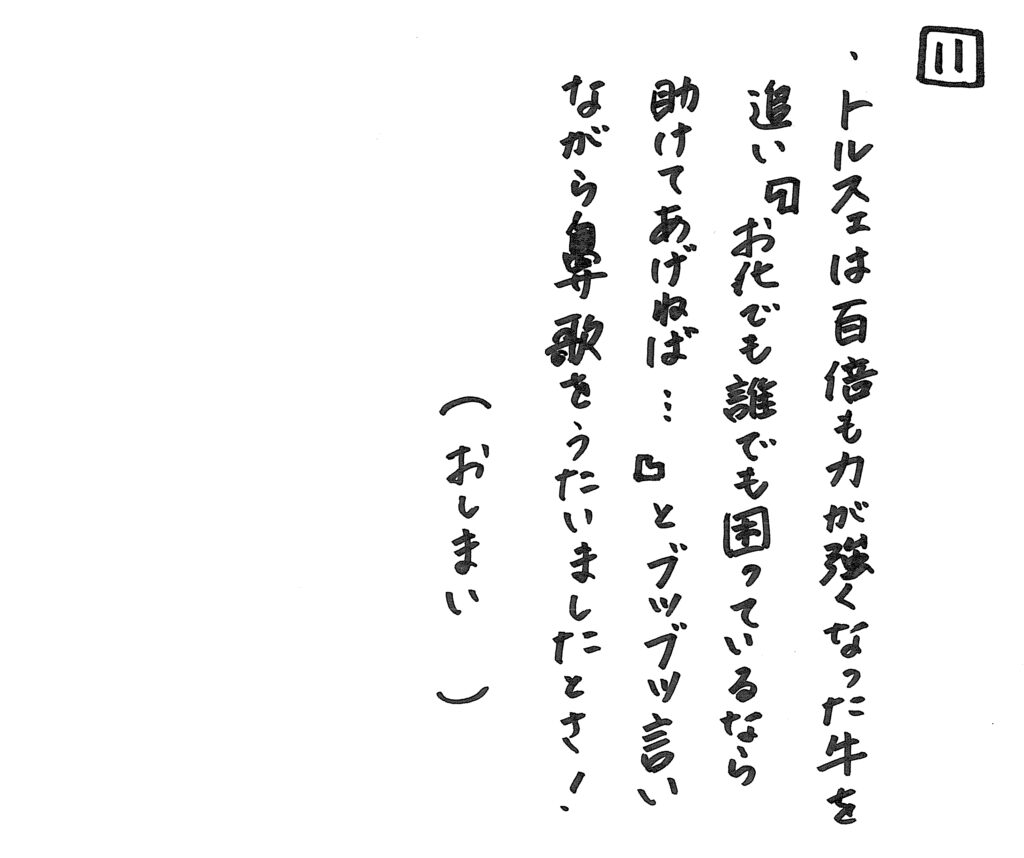 11
・トルスェは百倍も力が強くなった牛を
追い『お化でも誰でも困っているなら
助けてあげねば…』とブツブツ言い
ながら鼻歌をうたいましたとさ！
（おしまい）